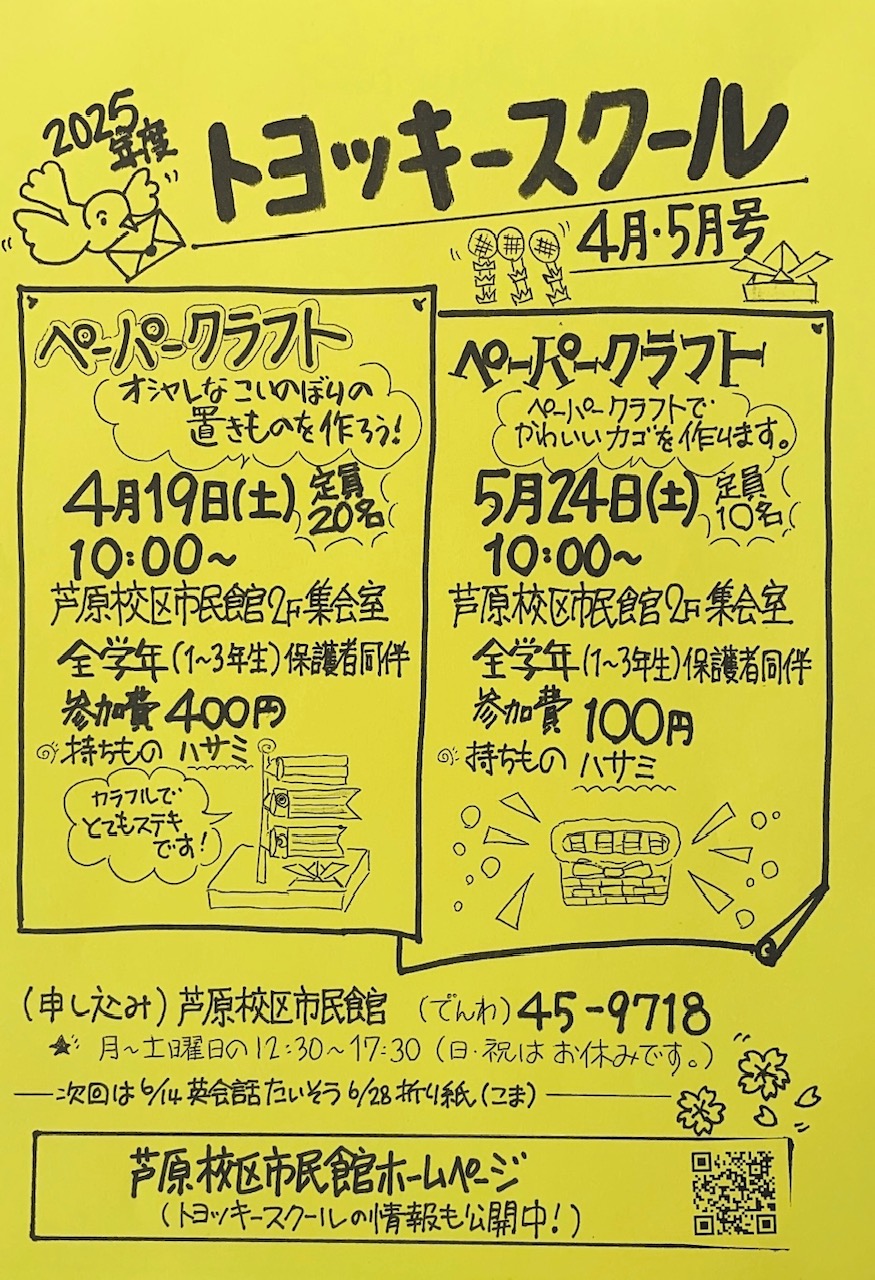 2025
年度
トヨッキースクール
4月・5月号
ペーパークラフト
オシャレなこいのぼりの
置きものを作ろう!
4月19日(土)
定員
20名
10:00~
芦原校区市民館2F集会室
全学年(1~3年生)保護者同伴
参加費 400円
持ちもの ハサミ
カラフルで
とてもステキ
です!
ペーパークラフト
ペーパークラフトで
かわいいカゴを作ります。
5月24日(土)
定員
10名
10:00~
芦原校区市民館2F集会室
全学年(1~3年生)保護者同伴
参加費 100円
持ちもの ハサミ
(申し込み)芦原校区市民館 (でんわ)45-9718
★月~土曜日の12:30~17:30(日・祝はお休みです。)
次回は6/14英会話たいそう6/28折り紙(こま)
芦原校区市民館ホームページ
(トヨッキースクールの情報も公開中!)